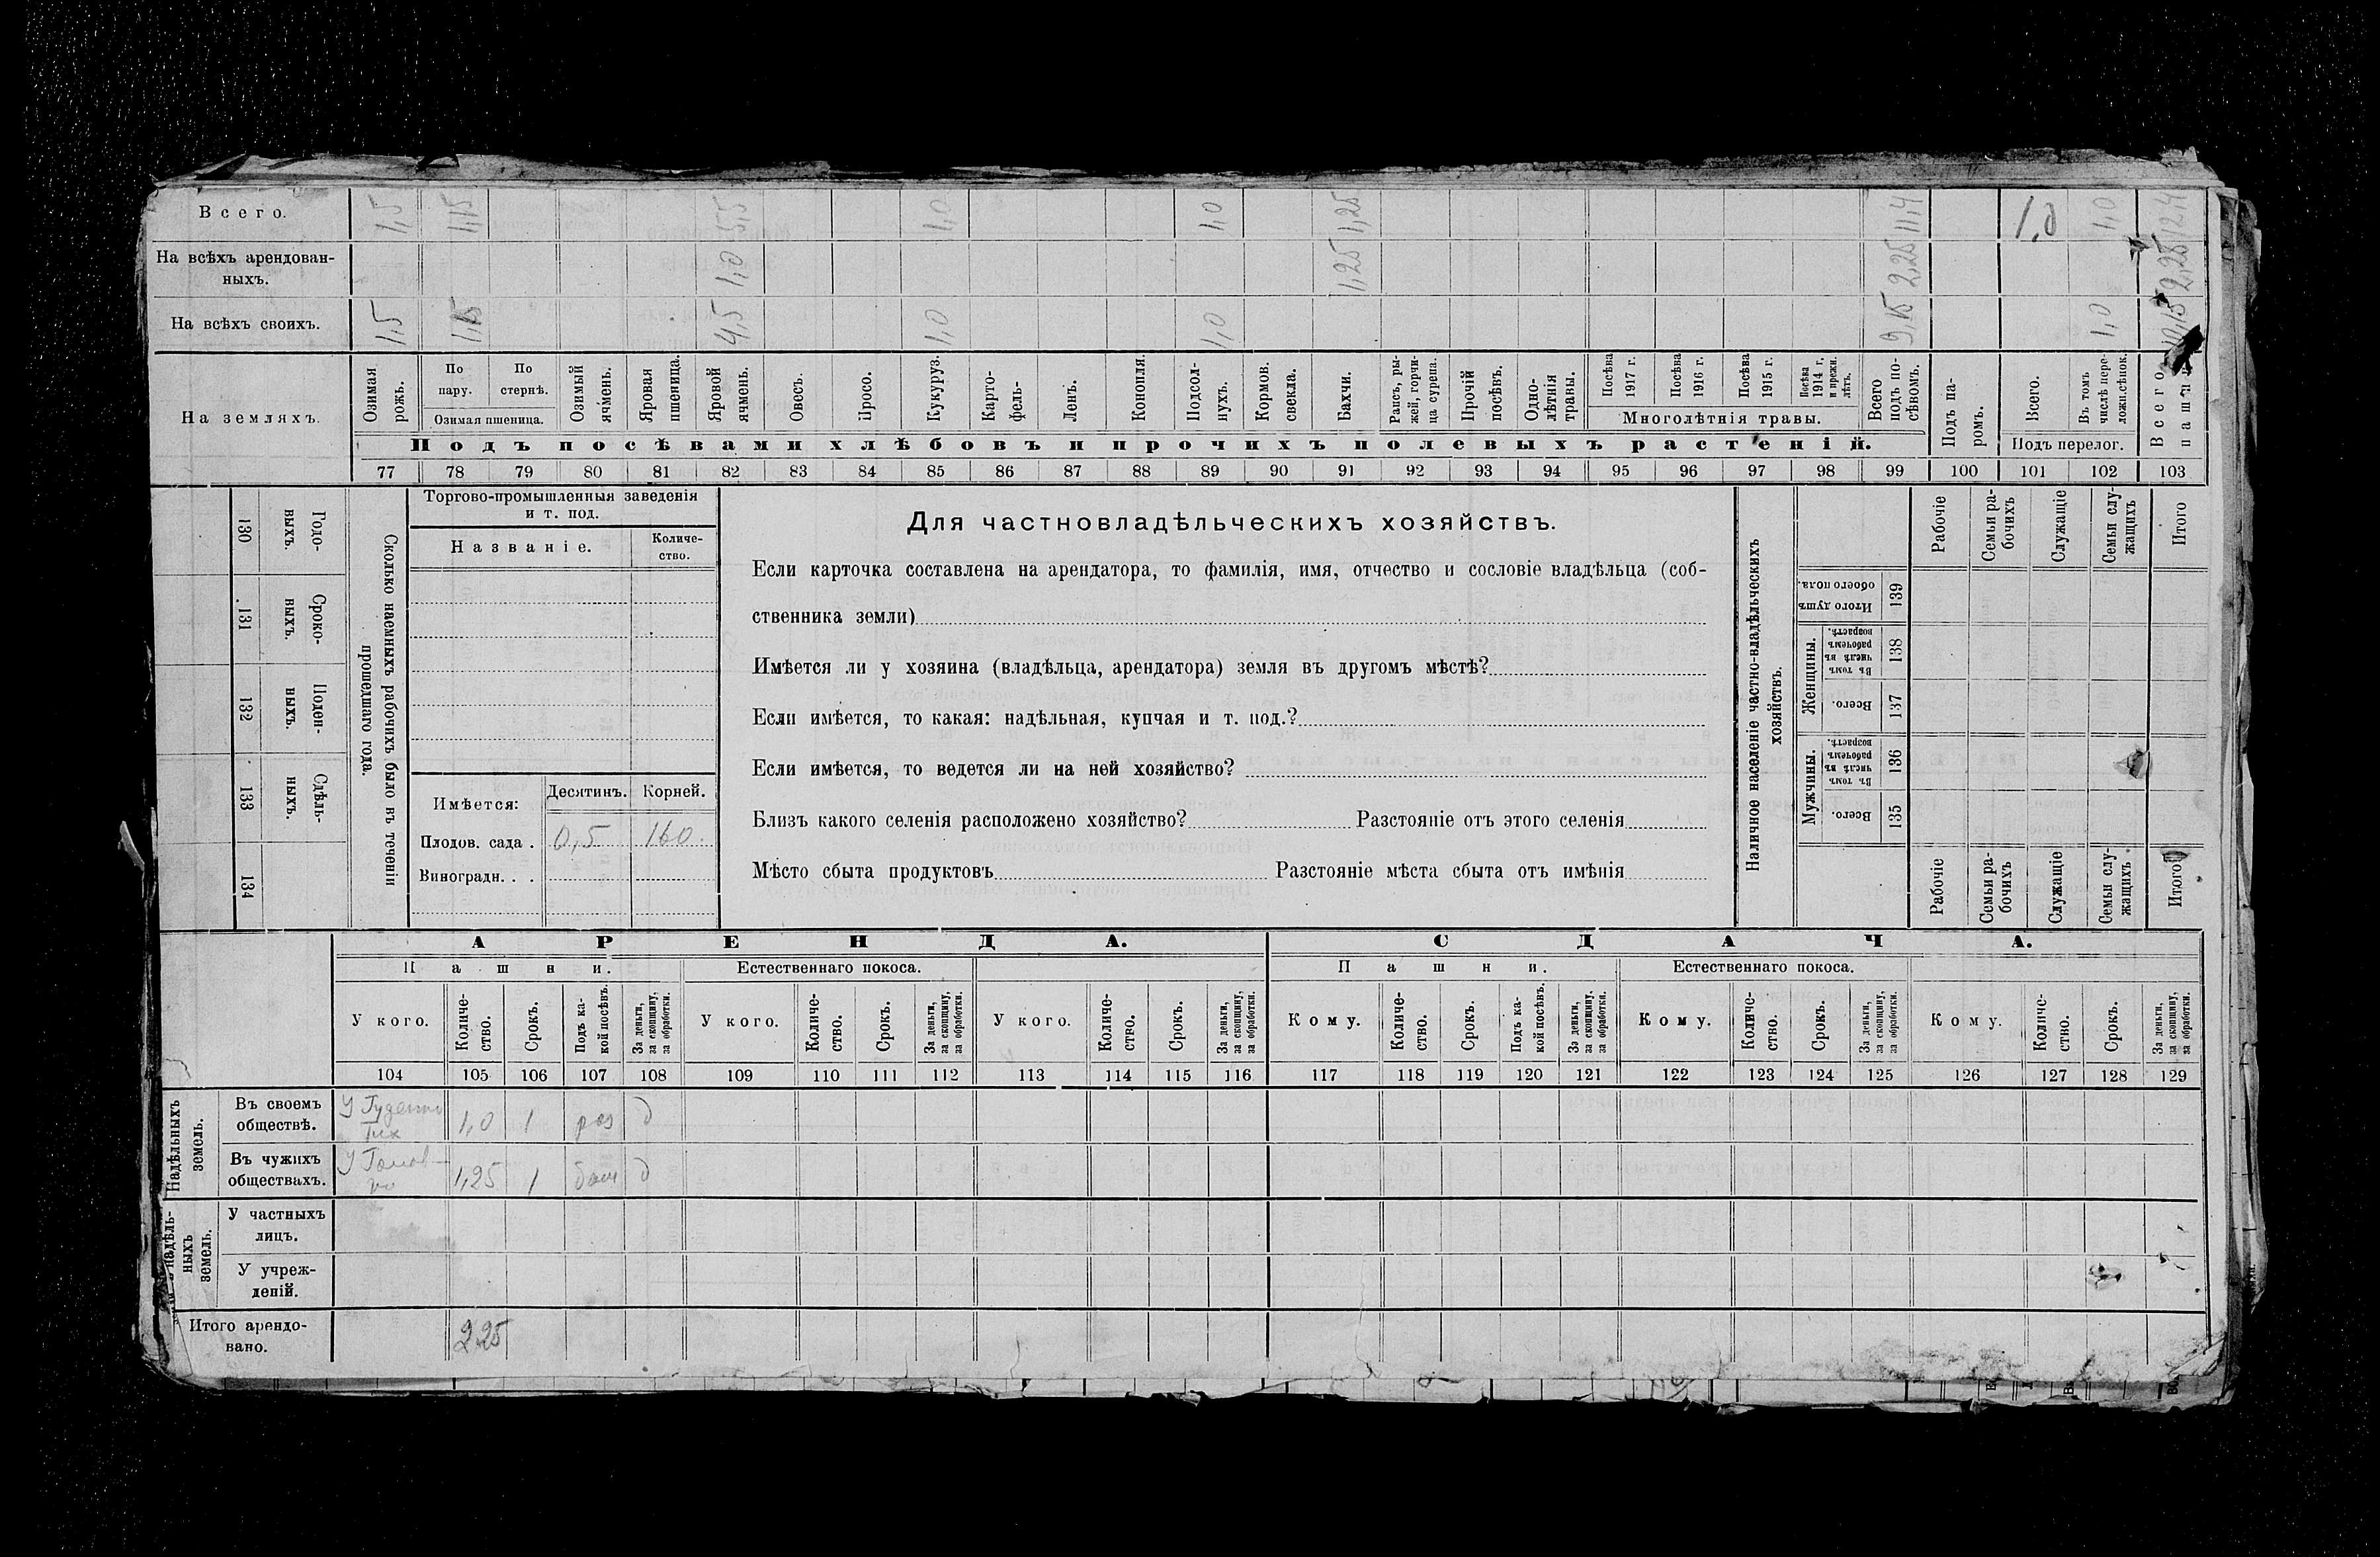 Всего. 1,5 1,15 5,5 1,0 1,0 1,25 11,4 1,0 1,0 12,4
На всѣхъ арендован-
ныхъ. 1,0 1,25 2,25 2,25
На всѣхъ своихъ. 1,5 1,15 4,5 1,0 1,0 9,15 1,0 10,15
На земляхъ.
Озимая рожь.
По пару.
По стернѣ.
Озимая пшеница.
Озимый ячмень.
Яровая пшеница.
Яровой ячмень.
Овесъ.
Просо.
Кукуруз.
Карто-
фель-
Ленъ.
Конопля.
Подсол-
нухъ.
Кормов.
свекла.
Бахчи.
Рапсъ, ры-
жей, горчи-
ца сурепа.
Прочій
посѣвъ.
Одно-
лѣтнія
травы.
Посѣва
1917 г.
Посѣва
1916 г.
Посѣва
1915 г.
Посѣва
1914 г,
и прежн.
лѣтъ.
Многолѣтнія травы.
Всего
подъ по-
сѣвомъ.
Подъ па-
ромъ.
Всего.
Въ томъ
числѣ пере-
ложн.сѣнок.
Подъ перелог.
Всего
пашни
Подъ посѣвами хлѣбовъ и прочихъ полевыхъ растеній.
77 78 79 80 81 82 83 84 85 86 87 88 89 90 91 92 93 94 95 96 97 98 99 100 101 102 103
130 Годо-
выхъ.
131 Сроко-
ныхъ.
132 Поден-
ныхъ.
133 Сдѣль-
ныхъ.
134
Сколько наемныхъ рабочихъ было въ теченіи
прошедшаго года.
Торгово-промышленныя заведенія
и т. под.
Названіе.
Количе-
ство.
Имѣется:
Десятинъ. Корней.
Плодов. сада . 0,5 160
Виноградн. . .
Для частновладѣльческихъ хозяйствъ.
Если карточка составлена на арендатора, то фамилія, имя, отчество и сословіе владѣльца (соб-
ственника земли)
Имѣется ли у хозяина (владѣльца, арендатора) земля въ другомъ мѣстѣ?
Если имѣется, то какая: надѣльная, купчая и т. под.?
Если имѣется, то ведется ли на ней хозяйство?
Близъ какого селенія расположено хозяйство? Разстояніе отъ этого селенія
Мѣсто сбыта продуктовъ Разстояніе мѣста сбыта отъ имѣнія
Наличное населеніе частно-владѣльческихъ
хозяйствъ.
Рабочіе
Семьи ра-
бочихъ
Служащіе
Семьи слу-
жащихъ
Итого
Итого душъ
обоего пола.
139
Женщины.
Въ томъ
числѣ въ
рабочемъ
возрастѣ.
138
Всего.
137
Мужчины.
Въ томъ
числѣ въ
рабочемъ
возрастѣ.
136
Всего.
135
Рабочіе
Семьи ра-
бочихъ
Служащіе
Семьи слу-
жащихъ
Итого
АРЕНДА. СДАЧА.
Пашни. Естественнаго покоса. Пашни. Естественнаго покоса.
У кого.
Количе-
ство.
Срокъ.
Подъ ка-
кой посѣвъ.
За деньги,
за скопщину,
за обработки.
У кого.
Количе-
ство.
Срокъ.
За деньги,
за скопщину,
за обработки.
У кого.
Количе-
ство.
Срокъ.
За деньги,
за скопщину,
за обработки.
Кому.
Количе-
ство.
Срокъ.
Подъ ка-
кой посѣвъ.
За деньги,
за скопщину,
за обработки.
Кому.
Количе-
ство.
Срокъ.
За деньги,
за скопщину,
за обработки.
Кому.
Количе-
ство.
Срокъ.
За деньги,
за скопщину,
за обработки.
104 105 106 107 108 109 110 111 112 113 114 115 116 117 118 119 120 121 122 123 124 125 126 127 128 129
Надѣльныхъ
земель.
Въ своемъ
обществѣ. У 1,0 1 д
Въ чужихъ
обществахъ. У 1,25 1 д
надѣль-
ныхъ
земель.
У частныхъ
лицъ.
У учреж-
деній.
Итого арендо-
вано. 2.25